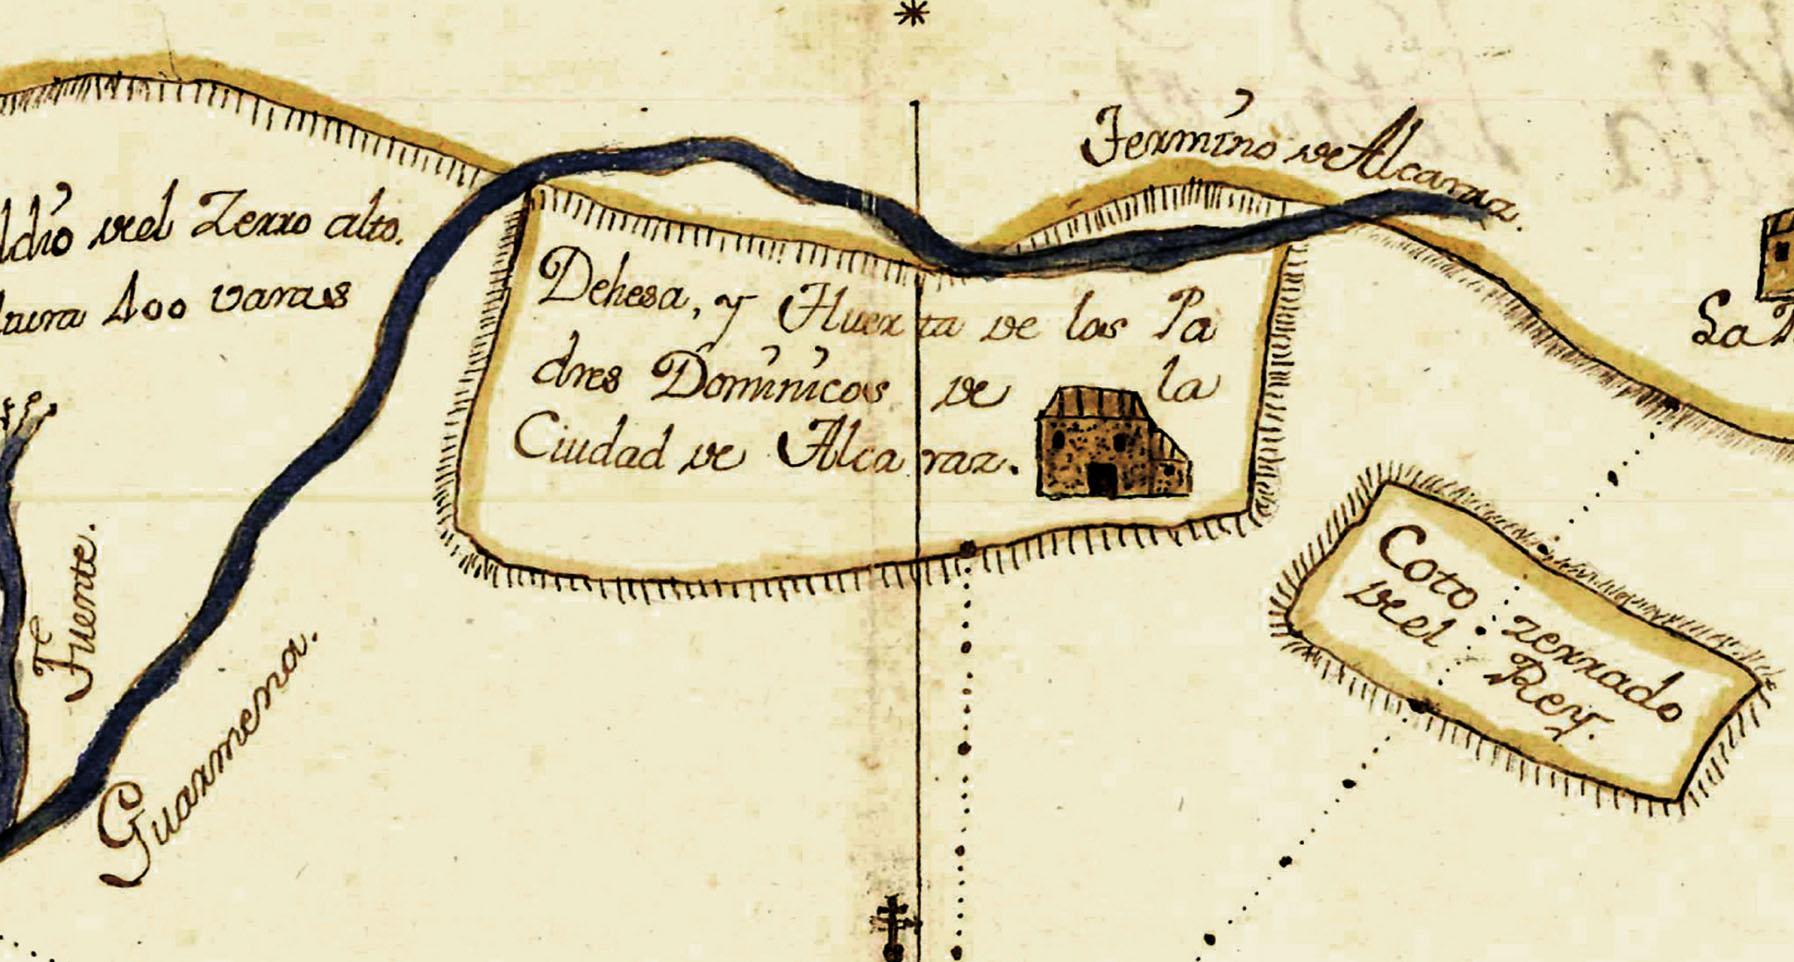 Termino de Alcaraz.
del Zerro alto.
400 varas
Dehesa, y Huerta de los Pa
dres Dominicos de la
Ciudad de Alcaraz.
La
Coto zerrado
del Rey.
Fuente.
Guarmena.